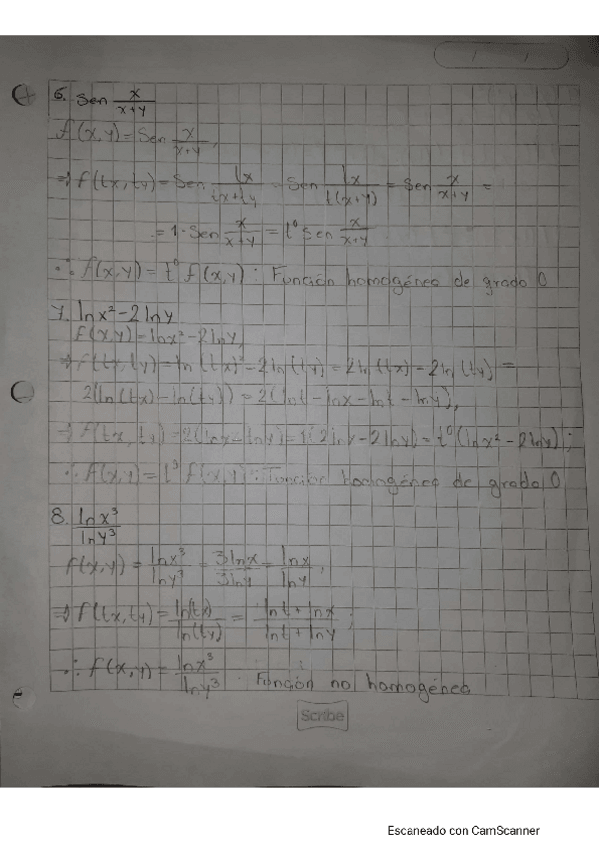 6. Sen x/(x+y)
f(x,y) = Sen x/(x+y),
⇒ f(tx,ty) = Sen tx/(tx+ty) = Sen tx/(t(x+y)) = Sen x/(x+y) =
= 1 · Sen x/(x+y) = t⁰ Sen x/(x+y)
∴ f(x,y) = t⁰ f(x,y) : Función homogénea de grado 0
7. ln x² - 2 ln y
f(x,y) = ln x² - 2 ln y,
⇒ f(tx,ty) = ln (tx)² - 2 ln (ty) = 2 ln (tx) - 2 ln (ty) =
2(ln(tx) - ln(ty)) = 2(ln t - ln x - ln t - ln y),
⇒ f(tx,ty) = 2(ln x - ln y) = 1(2 ln x - 2 ln y) = t⁰(ln x² - 2 ln y);
∴ f(x,y) = t⁰ f(x,y) : Función homogénea de grado 0
8. ln x³/ln y³
f(x,y) = ln x³/ln y³ = 3 ln x/3 ln y = ln x/ln y,
⇒ f(tx,ty) = ln(tx)/ln(ty) = (ln t + ln x)/(ln t + ln y);
∴ f(x,y) = ln x³/ln y³ : Función no homogénea
Scribe
Escaneado con CamScanner